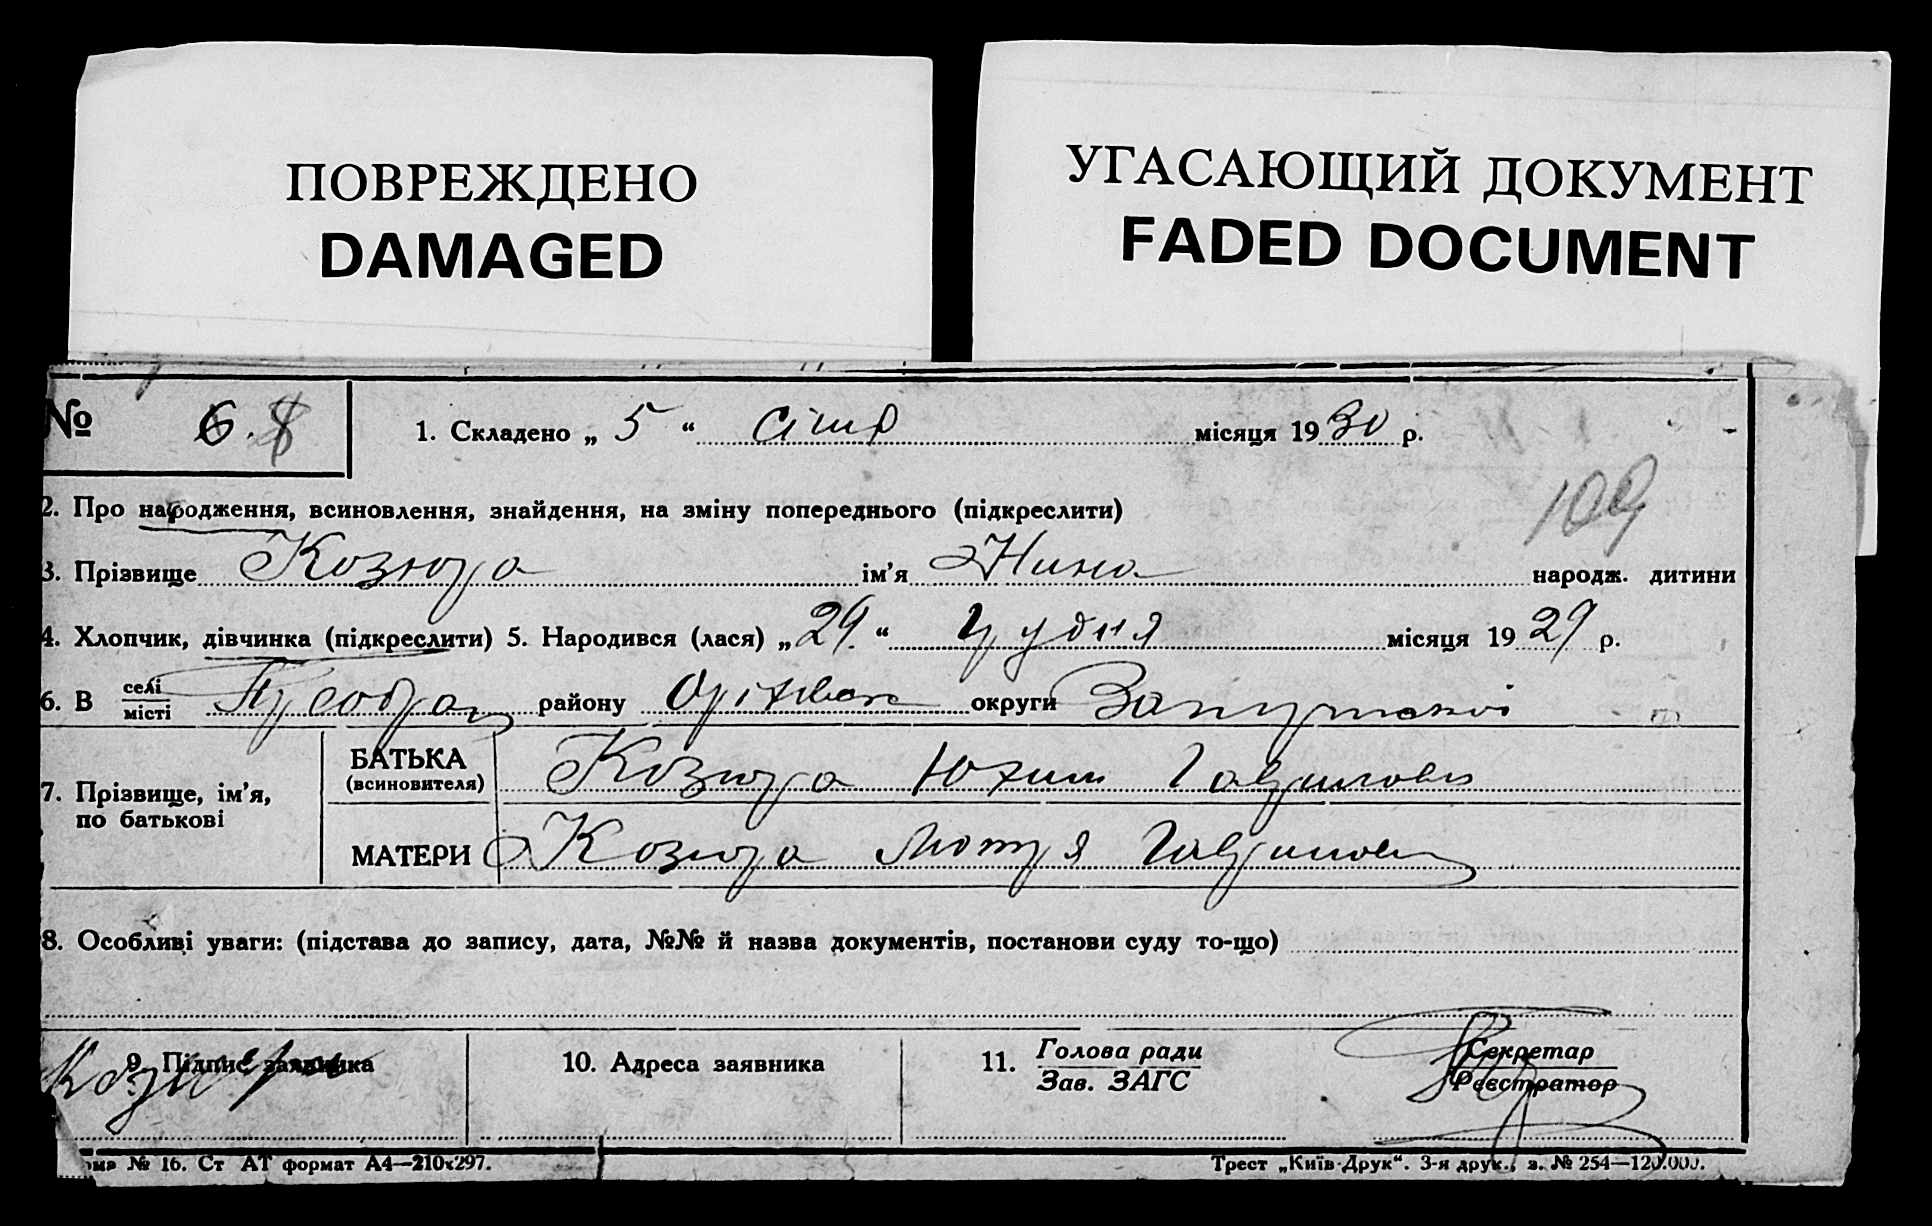 ПОВРЕЖДЕНО
DAMAGED
УГАСАЮЩИЙ ДОКУМЕНТ
FADED DOCUMENT
№ 6.8
1. Складено „ 5 “ січня місяця 1930 р.
109
2. Про народження, всиновлення, знайдення, на зміну попереднього (підкреслити)
3. Прізвище Козюра ім’я Нина народж. дитини
4. Хлопчик, дівчинка (підкреслити) 5. Народився (лася) „ 29 “ грудня місяця 1929 р.
6. В селі місті району Оріхівск округи
7. Прізвище, ім’я, по батькові
БАТЬКА (всиновителя) Козюра Юхим Гаврилович
МАТЕРИ Козюра Мотря Гавриловна
8. Особливі уваги: (підстава до запису, дата, №№ й назва документів, постанови суду то-що)
9. Підпис заявника 10. Адреса заявника 11. Голова ради Зав. ЗАГС Секретар Реєстратор
Козюра
№ 16. Ст АТ формат А4—210х297.
Трест „Київ-Друк“. 3-я друк., з. № 254—120.000.